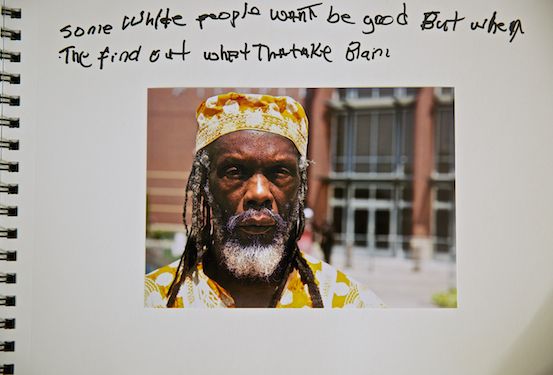 Some White people want be good But when
The find out what That take Blam